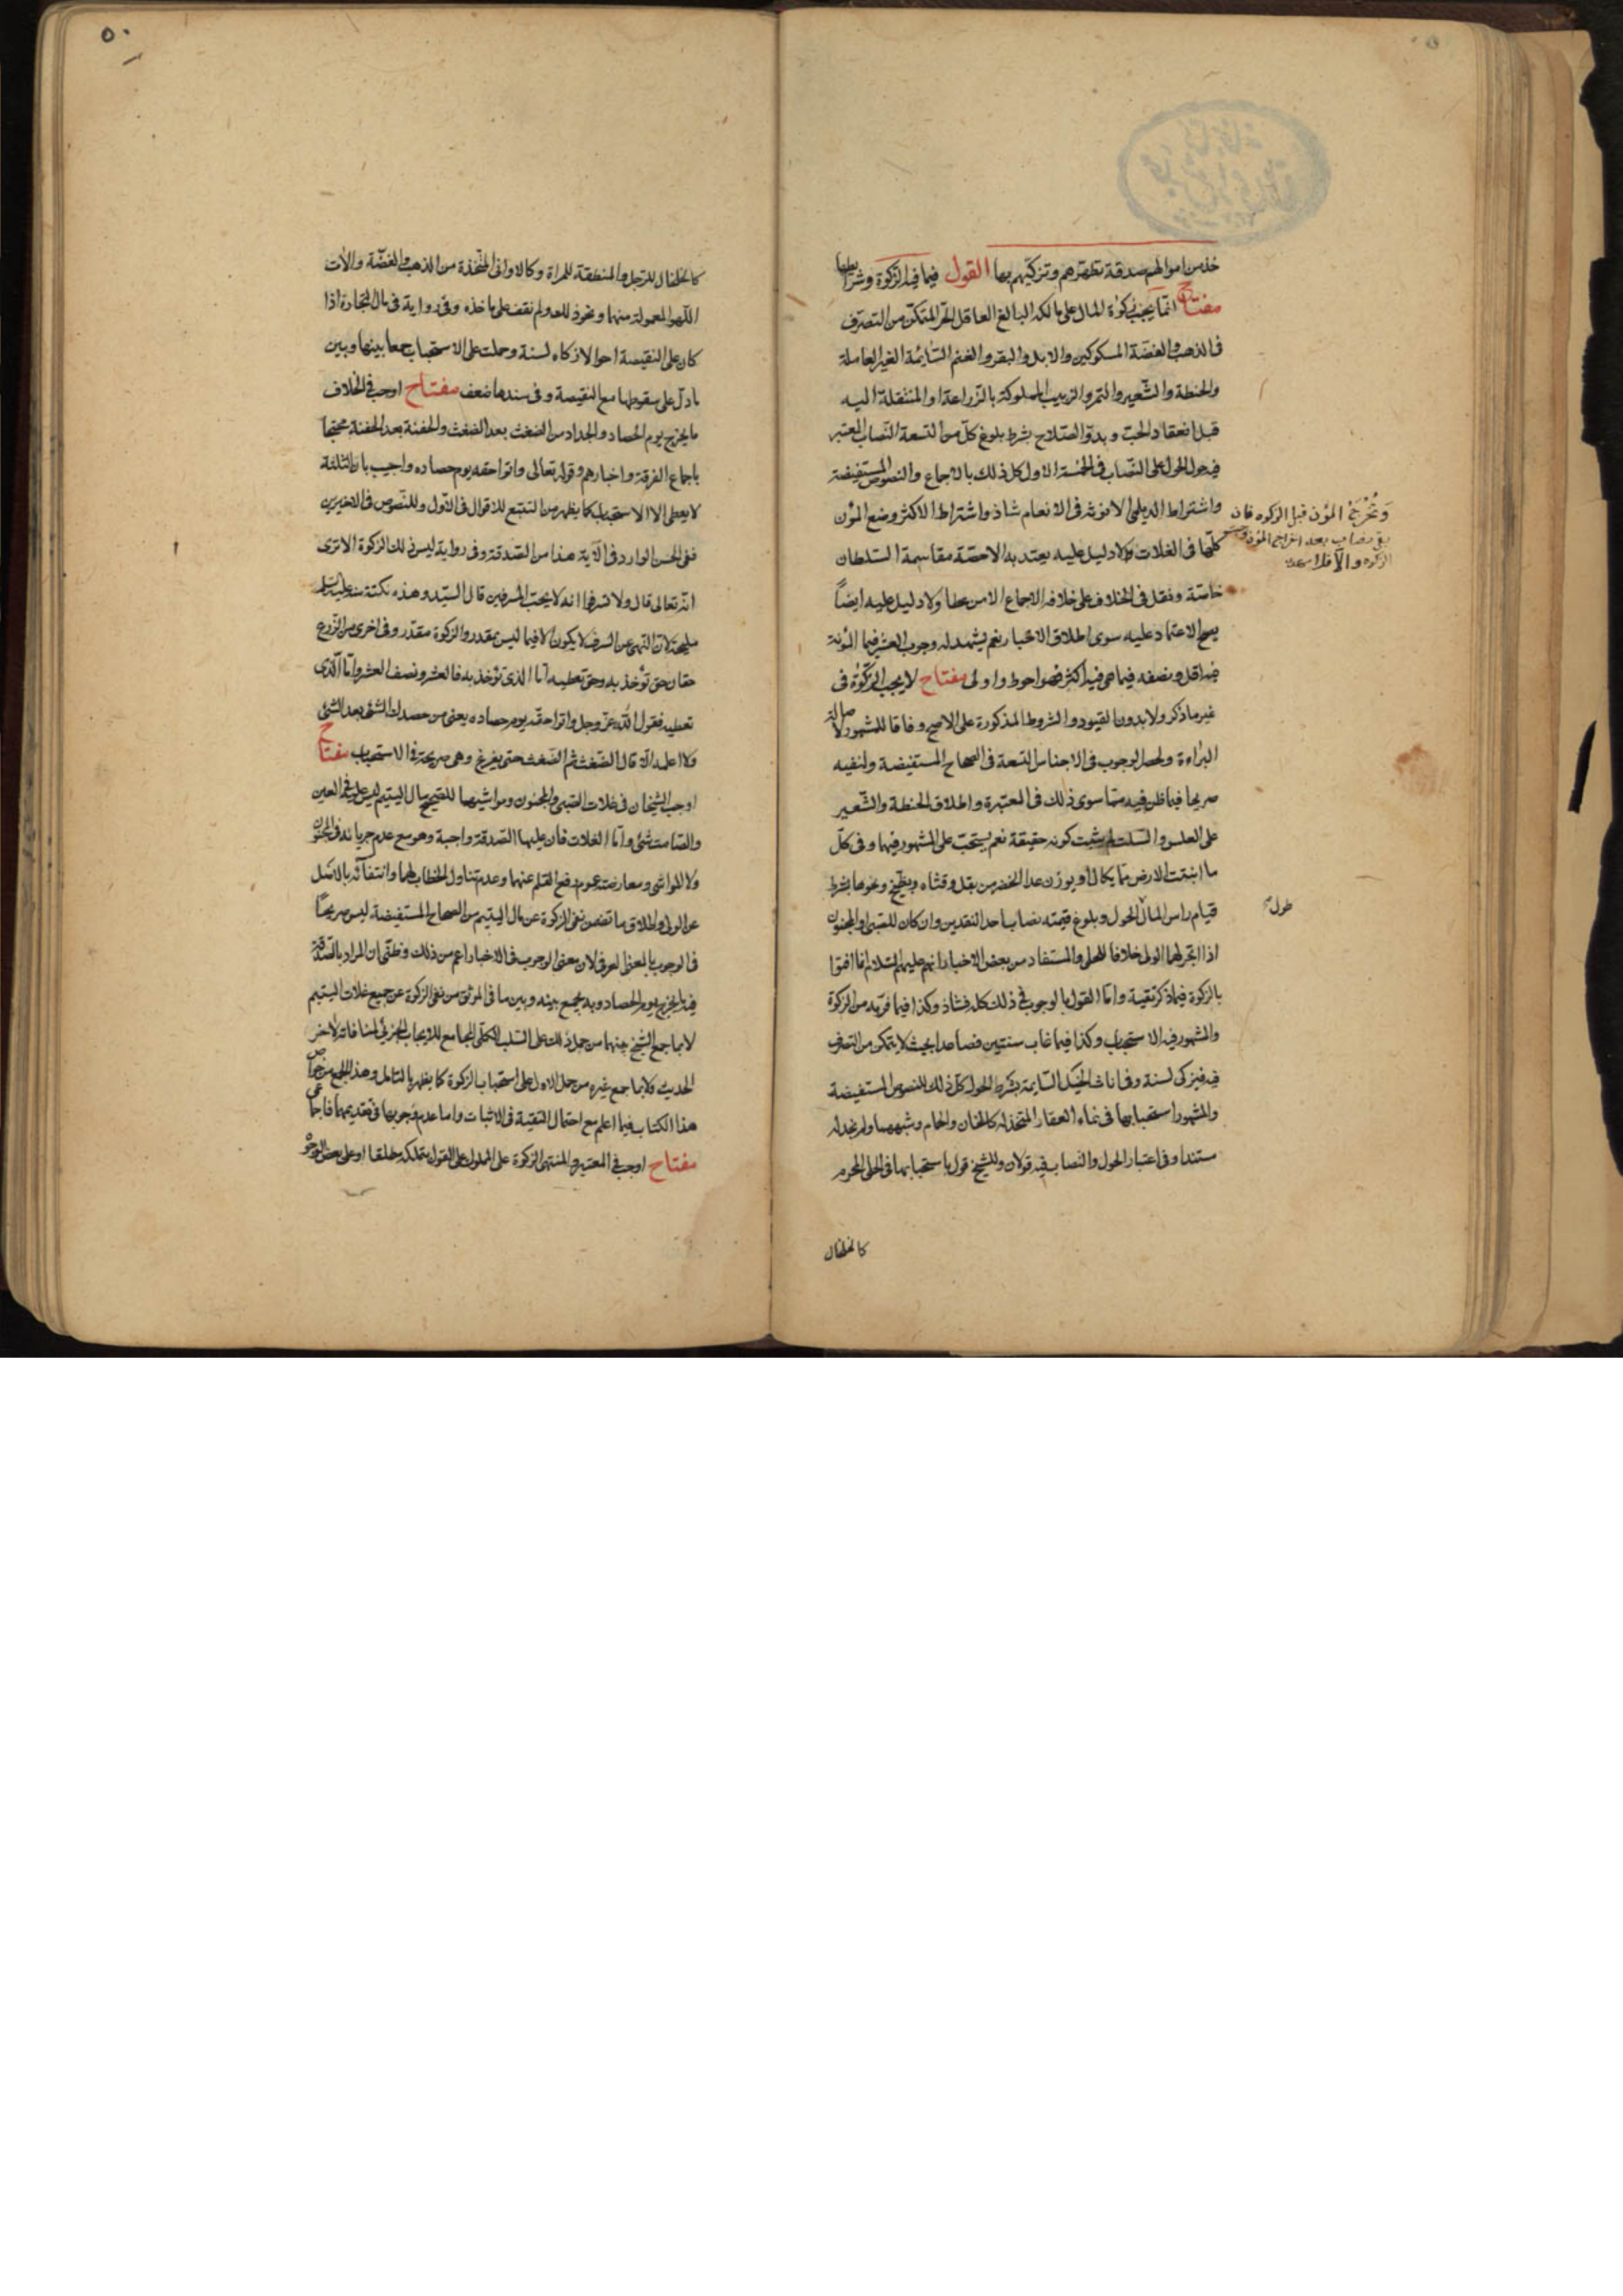 خذ من اموالهم صدقة تطهرهم وتزكيهم بها القول فيما فيه الزكوة وشرائطها
مفتاح انما يجب زكوة المال على مالكه البالغ العاقل الحر المتمكن من التصرف
فى الذهب والفضة المسكوكين والابل والبقر والغنم السائمة الغير العاملة
والحنطة والشعير والتمر والزبيب المملوكة بالزراعة او المنتقلة اليه
قبل انعقاد الحب وبدو الصلاح بشرط بلوغ كل من التسعة النصاب المعتبر
فيه وحول الحول على النصاب فى الخمسة الاول كل ذلك بالاجماع والنصوص المستفيضة
واشتراط الديلمى الانوثة فى الانعام شاذ واشتراط الاكثر وضع المؤن
كلها فى الغلات ولا دليل عليه يعتد به الا حصة مقاسمة السلطان
خاصة ونقل فى الخلاف على خلافه الاجماع الا من عطا ولا دليل عليه ايضاً
يصح الاعتماد عليه سوى اطلاق الاخبار نعم يشهد له وجوب العشر فيما المؤنة
فيه اقل ونصفه فيما هى فيه اكثر فهو احوط واولى مفتاح لا يجب الزكوة فى
غير ما ذكر ولا بدون القيود والشروط المذكورة على الاصح وفاقا للمشهور لاصالة
البراءة ولحصر الوجوب فى الاجناس التسعة فى الصحاح المستفيضة ولنفيه
صريحا فيما ظن فيه مما سوى ذلك فى المعتبرة واطلاق الحنطة والشعير
على العلس والسلت لم يثبت كونه حقيقة نعم يستحب على المشهور فيهما وفى كل
ما انبتت الارض مما يكال او يوزن عدا الخضر من بقل وقثاء وبطيخ ونحوها بشرط
قيام راس المال الحول وبلوغ قيمته نصاب احد النقدين وان كان للصبى والمجنون
اذا اتجر لهما الولى خلافا للحلى والمستفاد من بعض الاخبار انهم عليهم السلام انما افتوا
بالزكوة فيما ذكر تقية واما القول بالوجوب فى ذلك كله فشاذ وكذا فيما فر به من الزكوة
والمشهور فيه الاستحباب وكذا فيما غاب سنتين فصاعدا بحيث لا يتمكن من التصرف
فيه فيزكى لسنة وفى اناث الخيل السايمة بشرط الحول كل ذلك للنصوص المستفيضة
والمشهور استحبابها فى نماء العقار المتخذ له كالخان والحمام وشبههما ولم نجد له
مستندا وفى اعتبار الحول والنصاب فيه قولان وللشيخ قول باستحبابها فى الحلى المحرم
كالخلخال
وتخرج المؤن قبل الزكوة فان
بقى نصاب بعد اخراج المؤن وجب
الزكوة والا فلا
طول
٥٠
كالخلخال للرجل والمنطقة للمراة وكالاوانى المتخذة من الذهب والفضة والات
اللهو المعمولة منهما ونحو ذلك ولم نقف على ماخذه وفى رواية فى مال التجارة اذا
كان على النقيصة احوالا زكاه لسنة وحملت على الاستحباب جمعا بينها وبين
ما دل على سقوطها مع النقيصة وفى سندها ضعف مفتاح اوجب فى الخلاف
ما يخرج يوم الحصاد والجداد من الضغث بعد الضغث والحفنة بعد الحفنة محتجا
باجماع الفرقة واخبارهم وقوله تعالى واتوا حقه يوم حصاده واجيب بان الثلثة
لا يعطى الا الاستحباب كما يظهر من التتبع للاقوال فى الاول وللنصوص فى الاخيرين
ففى الحسن الوارد فى الآية هذا من الصدقة وفى رواية ليس ذلك الزكوة الا ترى
انه تعالى قال ولا تسرفوا انه لا يحب المسرفين قال السيد وهذه نكتة منه عليه السلم
مليحة لان النهى عن السرف لا يكون الا فيما ليس بمقدر والزكوة مقدر وفى اخرى من الزرع
حقان حق تؤخذ به وحق تعطيه اما الذى تؤخذ به فالعشر ونصف العشر واما الذى
تعطيه فقول الله عز وجل واتوا حقه يوم حصاده يعنى من حصدك الشئ بعد الشئ
ولا اعلمه الا قال الضغث ثم الضغث حتى يفرغ وهى صريحة فى الاستحباب مفتاح
اوجب الشيخان فى غلات الصبى والمجنون ومواشيهما للصحيح مال اليتيم ليس عليه فى العين
والصامت شئ واما الغلات فان عليها الصدقة واجبة وهو مع عدم جريانه فى المجنون
ولا المواشى ومعارضته عموم رفع القلم عنهما وعدم تناول الخطاب لهما وانتفائه بالاصل
عن الولى واطلاق ما تضمن نفى الزكوة عن مال اليتيم من الصحاح المستفيضة ليس صريحاً
فى الوجوب بالمعنى العرفى لان معنى الوجوب فى الاخبار اعم من ذلك وظنى ان المراد بالصدقة
فيه ما يخرج يوم الحصاد وبه يجمع بينه وبين ما فى الموثق من نفى الزكوة عن جميع غلات اليتيم
لا بما جمع الشيخ بينهما من حمل ذلك على السلب الكلى المجامع للايجاب الجزئى لمنافاته لاخر
الحديث ولا بما جمع غيره من حمل الاول على استحباب الزكوة كما يظهر بالتامل وهذا الجمع من خواص
هذا الكتاب فيما اعلم مع احتمال التقية فى الاثبات واما عدم وجوبها فى نقديهما فاجماعى
مفتاح اوجب فى المعتبر والمنتهى الزكوة على المملوك على القول بتملكه مطلقا او على بعض الوجوه